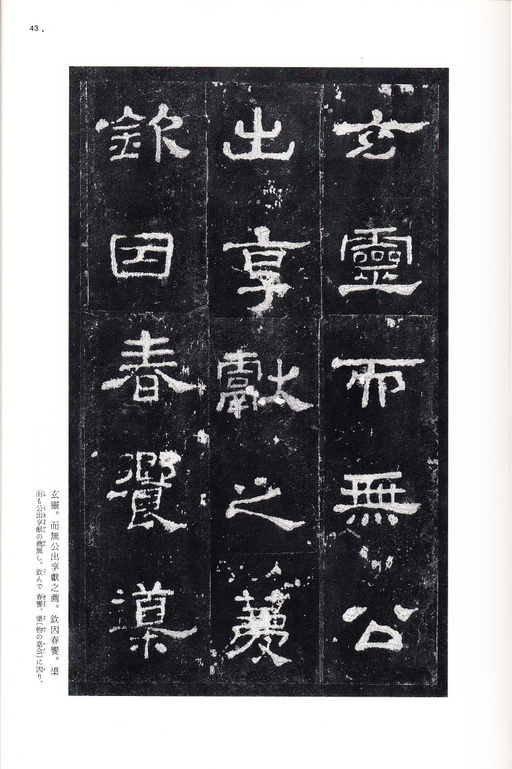 43
玄靈而無公
出享獻之薦
欽因春饗
玄靈。而無公出享獻之薦。欽因春饗。
而も公出享献の薦無し。欽んで春饗、(物の意会)に因り、